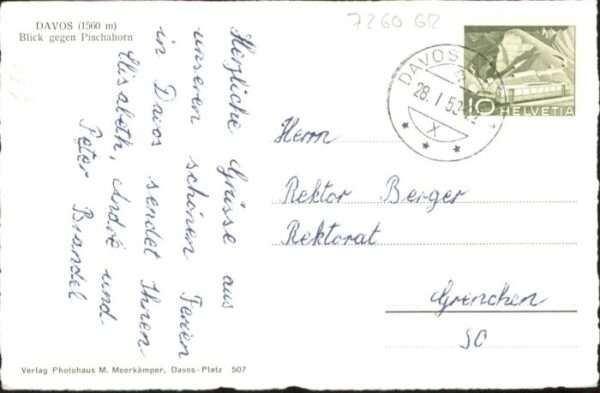 DAVOS (1560 m)
Blick gegen Pischahorn
7260 GR
Herzliche Grüsse aus
unseren schönen Ferien
in Davos sendet Ihnen
Elisabeth, André und
Peter Brandel
DAVOS
28. I 53
X
10 HELVETIA
Herrn
Rektor Berger
Rektorat
Grenchen
SO
Verlag Photohaus M. Meerkämper, Davos-Platz 507